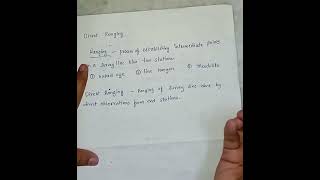 Direct Ranging
Ranging :- process of establishing Intermediate points
on a survey line b/w two stations.
① naked eye ② line ranger ③ theodolite
Direct Ranging - Ranging of survey line done by
direct observations from end stations.